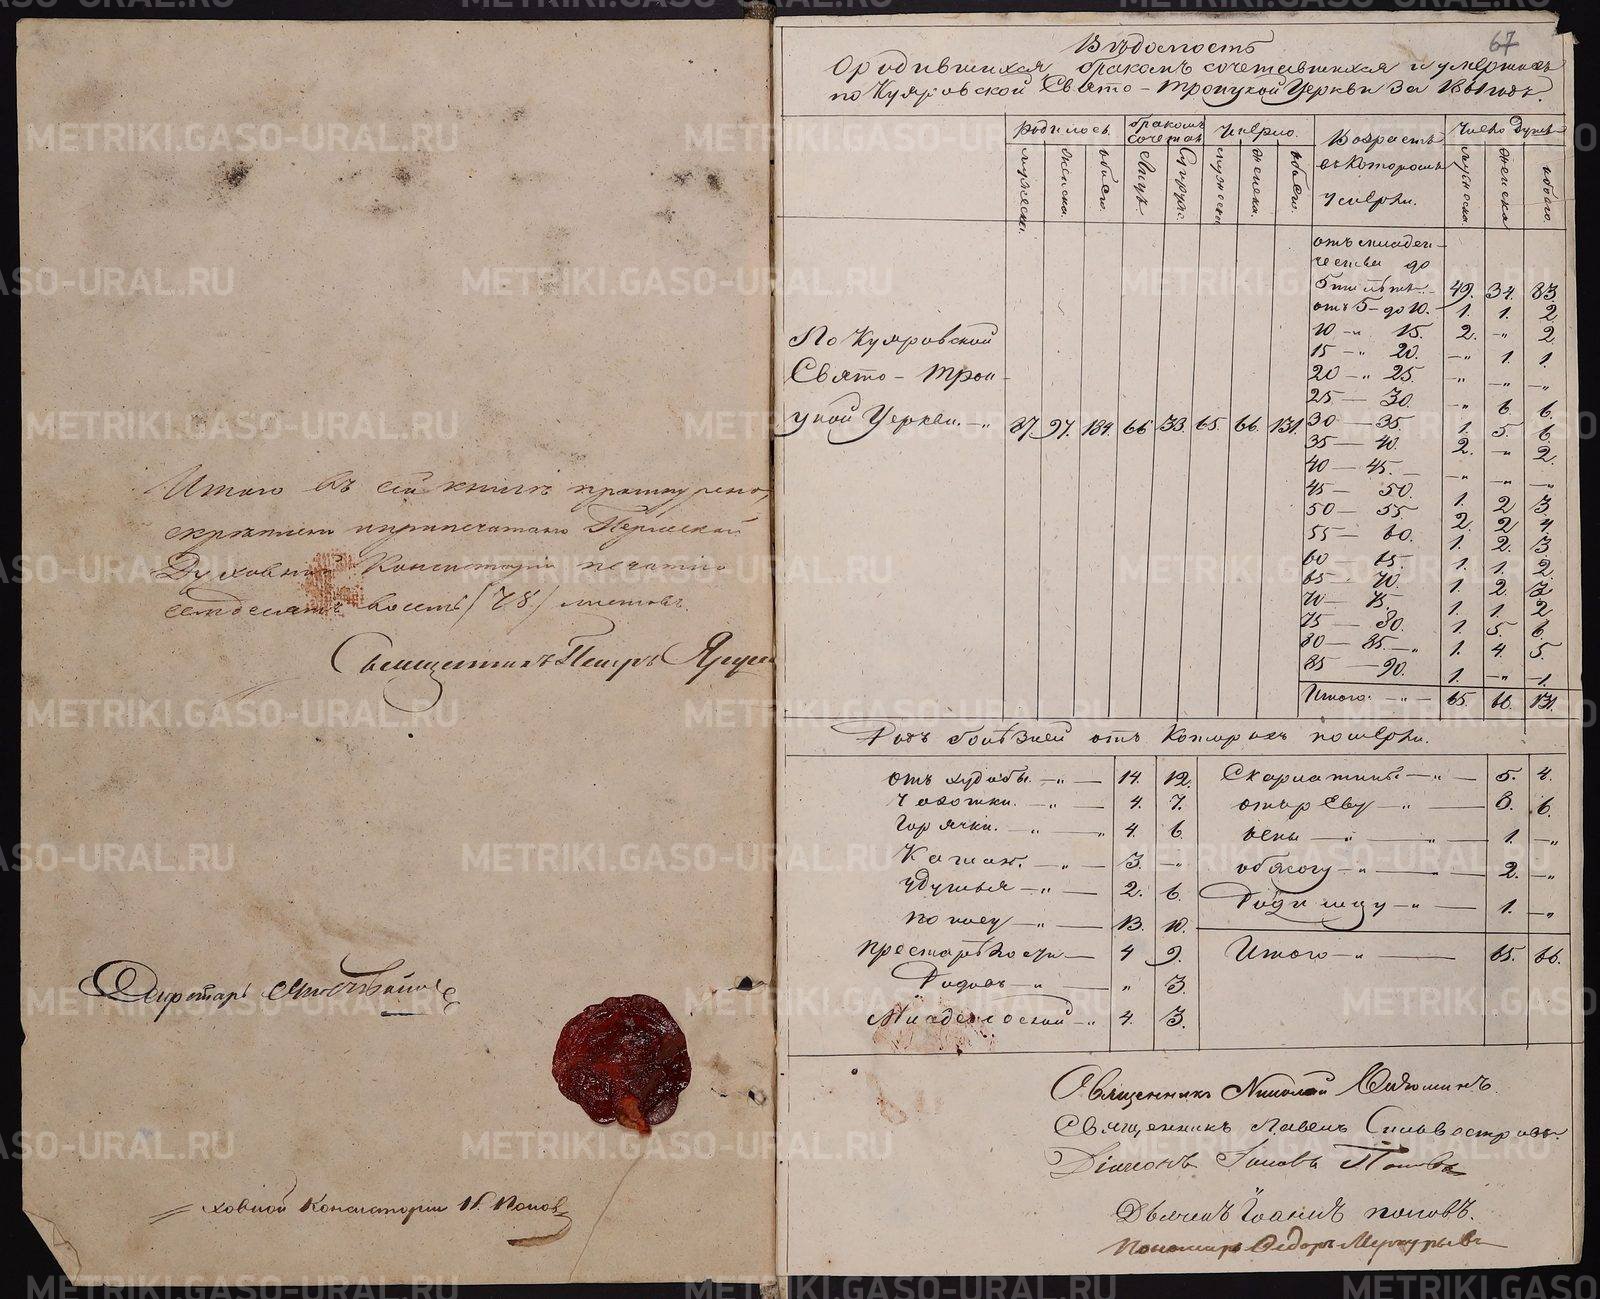 Итого въ сей книгѣ прошнурено,
скрѣплено и припечатано Пермской
Духовной Консисторіи печатью
семдесятъ восемь /78/ листовъ.
Священникъ Петръ
Секретарь
ховной Консисторіи Н. Попов
67
Вѣдомость
О родившихся бракомъ сочетавшихся и умершихъ
по Куяровской Свято-Троицкой Церкви за 1861 годъ.
Родилось. бракомъ сочетан Умерло. Возрастъ въ Которомъ Умерли. Число Душъ
мужеска. женска. обоего. Лицъ. Супруж. мужеска женска. обоего. мужеска. женска обоего.
По Куяровской
Свято-Трои-
цкой Церкви. -„ 87. 97. 184. 66 33. 65. 66. 131.
отъ младен-
чества до
5ти лѣтъ. 49. 34. 83.
отъ 5 до 10. 1. 1. 2
10 -„ 15. 2. -„ 2.
15 -„ 20. -„ 1. 1.
20 -„ 25. -„ -„ -„
25 — 30. -„ 6. 6.
30 — 35. 1. 5. 6
35 — 40. 2. -„ 2.
40 — 45. -„ -„ -„
45 — 50. 1. 2 3.
50 — 55 2. 2 4.
55 — 60. 1. 2. 3
60 65. 1. 1. 2
65 70. 1. 2. 3
70 — 75. 1. 1. 2
75 — 80. 1. 5. 6.
80 — 85. -„ 1. 4. 5.
85 — 90. 1. -„ 1.
Итого. -„ 65. 66. 131.
Родъ болѣзней отъ Которыхъ померли.
отъ худобы. -„ — 14. 12. Скарлатины -„ — 5. 4.
Чахотки. -„ — 4. 7. отъ реву -„ — 8. 6.
Горячки. -„ — „ 4. 6. оспы -„ — 1. -„
Кашля. -„ — 3. -„ обжогу -„ — 2. -„
удушья -„ — 2. 6. Родимцу -„ — 1. -„
поносу -„ — 13. 10.
престарѣлости — 4 9. Итого -„ — 65. 66.
Родовъ -„ — „ 3.
Младенческой -„ 4. 3.
Священникъ Николай
Священникъ Павелъ Сильвестровъ.
Діаконъ Іаковъ Поповъ
Дьячекъ Іоаннъ поповъ.
Пономарь Ѳедоръ Меркурьевъ
METRIKI.GASO-URAL.RU